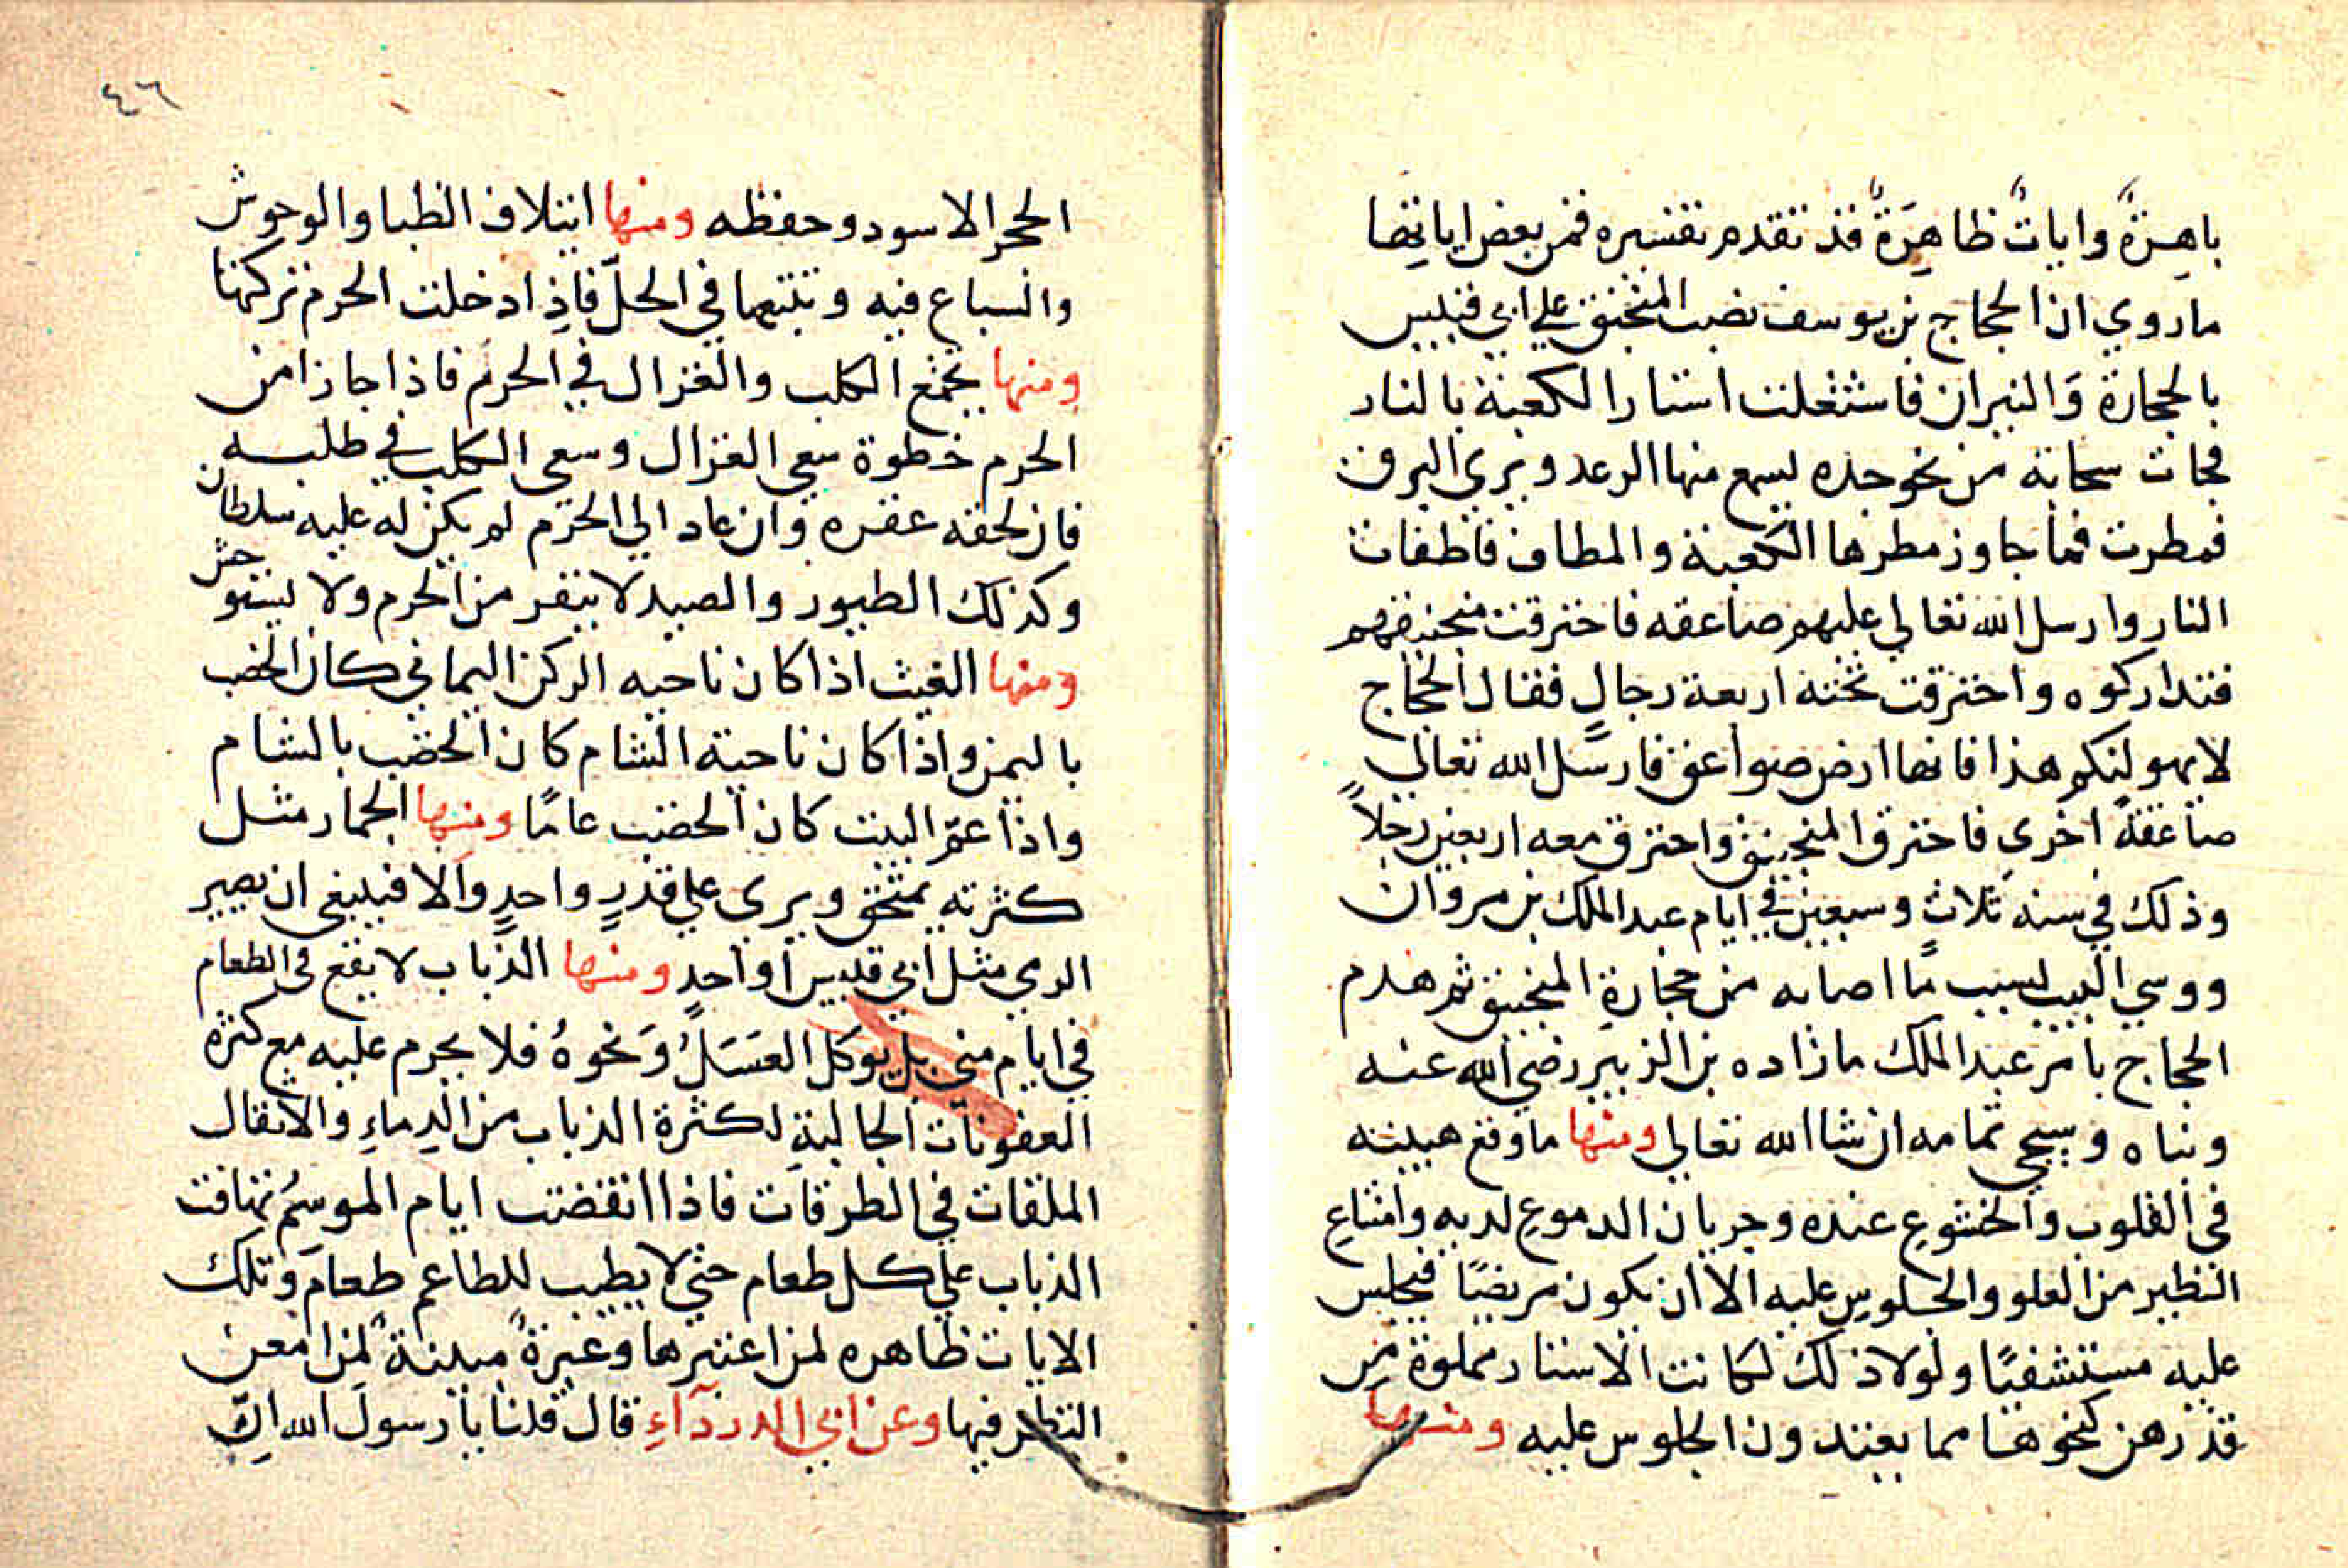 باهِرَةً وايات ظاهِرَةً قد تقدم تفسيره فمن بعض اياتها
ما روي ان الحجاج بن يوسف نصب المنجنيق علي ابي قبيس
بالحجارة وَالنيران فاشتعلت استار الكعبة بالنار
فجات سحابة من نحو جده يسمع منها الرعد ويري البرق
فمطرت فما جاوز مطرها الكعبة والمطاف فاطفات
النار وارسل الله تعالي عليهم صاعقه فاحترقت منجنيقهم
فتداركوه واحترقت تحته اربعة رجالٍ فقال الحجاج
لا يهولنكم هذا فانها ارض صواعق فارسل الله تعالي
صاعقةً اخري فاحترق المنجنيق واحترق معه اربعين رجلاً
وذلك في سنه ثلاث وسبعين في ايام عبد الملك بن مروان
ووسي البيت بسبب ما اصابه من حجارة المنجنيق ثم هدم
الحجاج بامر عبد الملك ما زاده بن الزبير رضي الله عنه
وبناه وسيجي تمامه ان شا الله تعالي ومنها ما وقع هيبته
في القلوب والخشوع عنده وجريان الدموع لديه وامتناع
الطير من العلو والجلوس عليه الا ان يكون مريضًا فيجلس
عليه مستشفيًا ولولا ذلك لكانت الاستار مملوة من
قذرهن كنحوها مما يعتدون الجلوس عليه ومنها
٤٦
الحجر الاسود وحفظه ومنها ايتلاف الظبا والوحوش
والسباع فيه وتتبعها في الحلّ فاِذا دخلت الحرم تركتها
ومنها يجمع الكلب والغزال في الحرم فاذا جازا من
الحرم خطوة سعي الغزال وسعي الكلب في طلبه
فان لحقه عقره وان عاد الي الحرم لم يكن له عليه سلطان
وكذلك الطيور والصيد لا ينفر من الحرم ولا يستوحش
ومنها الغيث اذا كان ناحيه الركن اليماني كان الخصب
باليمن واذا كان ناحية الشام كان الخصب بالشام
واذا عمّ البيت كان الخصب عامًا ومنها الجمار مثل
كثرته يمتحق ويرى علي قدرٍ واحدٍ والا فينبغي ان يصير
الرمي مثل ابي قبيس او احدٍ ومنها الذباب لا يقع في الطعام
في ايام مني بل يوكل العَسَلُ وَنحوهُ فلا يحرم عليه مع كثرة
العفونات الجالبةِ لكثرة الذباب من الدماءِ والاثقال
الملقات في الطرقات فاذا انقضت ايام الموسمُ تهافت
الذباب علي كل طعام حتي لا يطيب للطاعم طعامَ وتلك
الايات ظاهره لمن اعتبرها وعبرةً مبينةً لمن امعن
النظر فيها وعن ابي الدردآءِ قال قلنا يا رسول الله